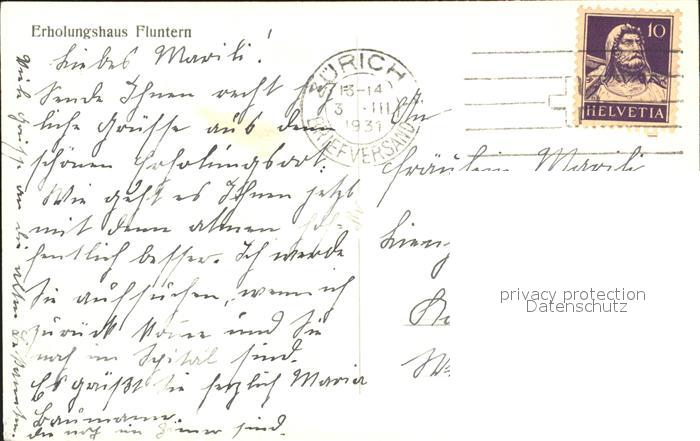 Erholungshaus Fluntern
Liebes Marili!
Sende Ihnen recht herz-
liche Grüsse aus dem
schönen Erholungsort.
Wie geht es Ihnen jetzt
mit dem atmen hof-
fentlich besser. Ich werde
Sie aufsuchen, wenn ich
zurück kome und Sie
noch im Spital sind.
Es grüßt Sie herzlich Maria
Baumann.
die noch im Zimer sind.
Viele Grüsse an die alten
ZÜRICH
13-14
3 III
1931
BRIEFVERSAND
10
HELVETIA
An
Fräulein Marili
privacy protection
Datenschutz